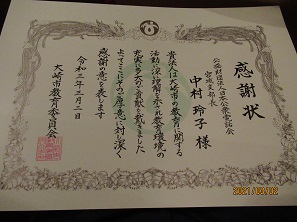 感謝状
公益財団法人日本公衆電話会
宮城支部長
中村玲子様
貴法人は大崎市の教育に関する
活動に深い理解を示され教育環境の
充実に多大な貢献を戴きました
よってここにその厚意に対し深く
感謝の意を表します
令和三年三月二日
大崎市教育委員会
2021/03/02